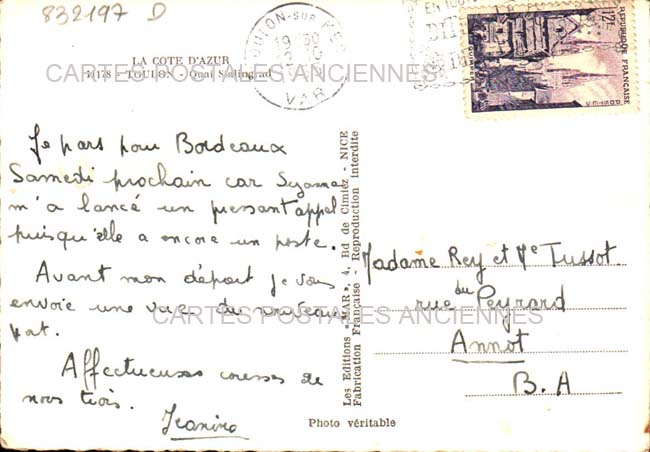 832197 D
LA COTE D'AZUR
TOULON - Quai Stalingrad
TOULON-SUR-MER
19 30
VAR
12F
REPUBLIQUE FRANÇAISE
QUIMPER
POSTES
CARTES POSTALES ANCIENNES
Je pars pour Bordeaux
Samedi prochain car Suzanne
m'a lancé un pressant appel
puisqu'elle a encore un poste.
Avant mon départ je vous
envoie une vue du nouveau
port.
Affectueuses caresses de
nous trois.
Jeanine
Les Editions "MAR", 4, Bd de Cimiez - NICE
Fabrication Française - Reproduction Interdite
Madame Rey et Me Tussot
rue du Peyrard
Annot
B.A
CARTES POSTALES ANCIENNES
Photo véritable